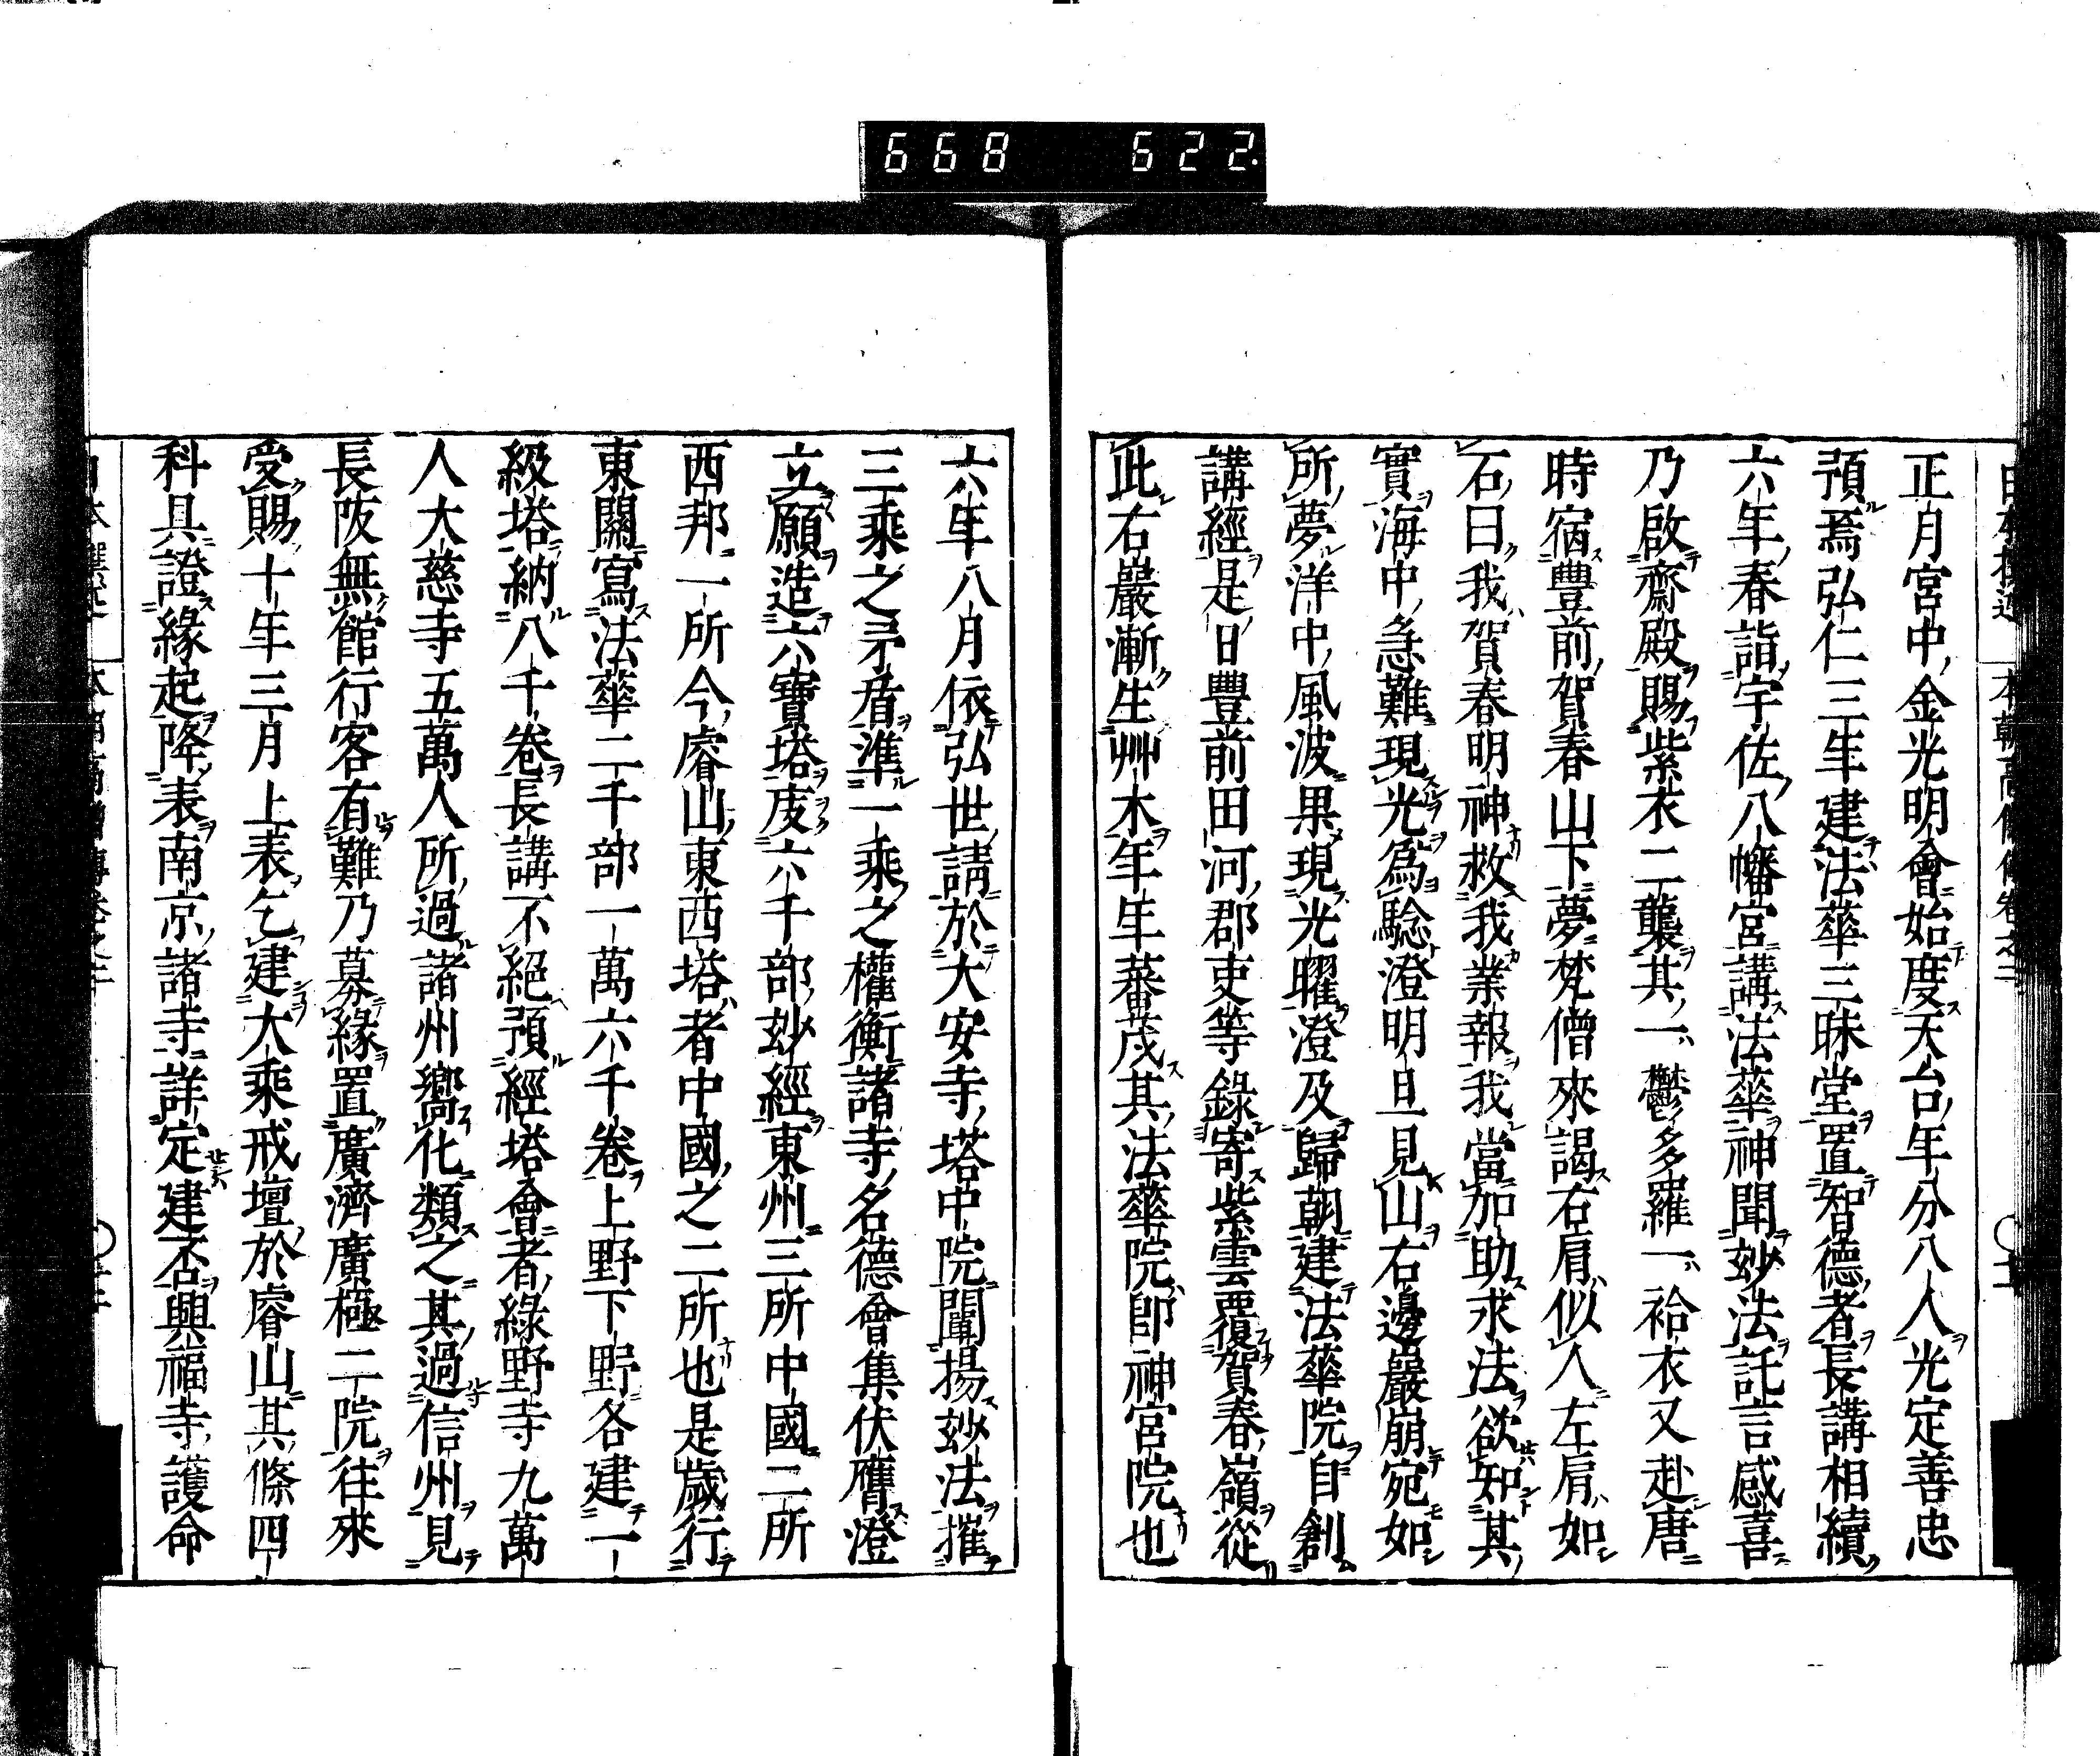 668 622
正月宮中金光明會始度天台年分八人光定善忠
預焉弘仁三年建法華三昧堂置智德者長講相續
六年春詣宇佐八幡宮講法華神聞妙法託言感喜
乃啟齋殿賜紫衣二襲其一鬱多羅一袷衣又赴唐
時宿豐前賀春山下夢梵僧來謁右肩似人左肩如
石曰我賀春明神救我業報我當加助求法欲知其
實海中急難現光爲驗澄明旦見山右邊巖崩宛如
所夢洋中風波果現光曜澄及歸朝建法華院自創
講經是日豐前田河郡吏等錄寄紫雲覆賀春嶺從
此右巖漸生艸木年年蕃茂其法華院即神宮院也
六年八月依弘世請於大安寺塔中院闡揚妙法摧
三乘之矛盾準一乘之權衡諸寺名德會集伏膺澄
立願造六寶塔庋六千部妙經東州三所中國二所
西邦一所今睿山東西塔者中國之二所也是歲行
東關寫法華二千部一萬六千卷上野下野各建一
級塔納八千卷長講不絕預經塔會者綠野寺九萬
人大慈寺五萬人所過諸州嚮化類之其過信州見
長阪無館行客有難乃募緣置廣濟廣極二院往來
受賜十年三月上表乞建大乘戒壇於睿山其條四
科具證緣起降表南京諸寺詳定建否興福寺護命